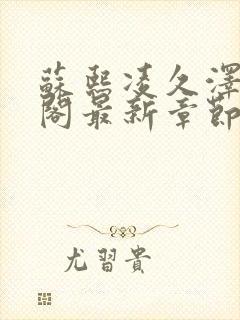 蘇熙凌久澤
閣最新章節
尤習貴